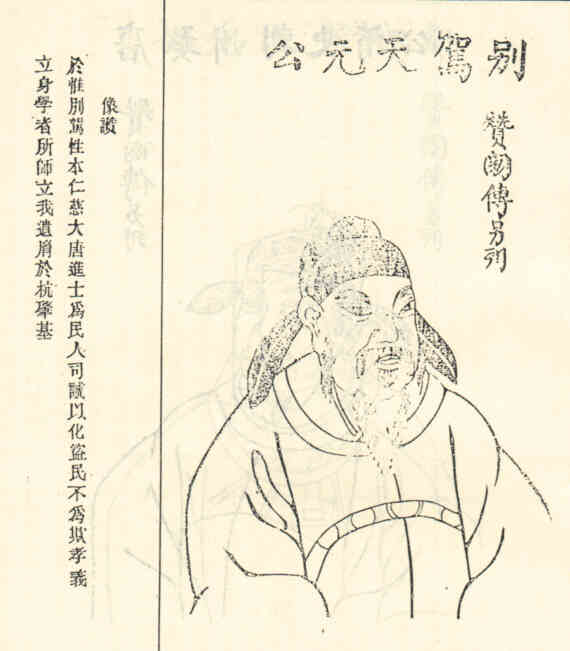 别駕天元公
贊闕傳另列
像讚
於惟別駕性本仁慈大唐進士爲民人司誠以化盜民不爲欺孝義
立身學者所師立我遺於杭肇基